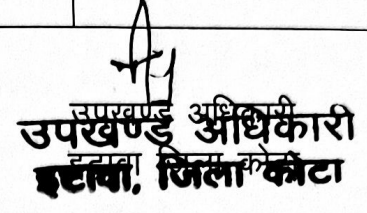 उपखण्ड अधिकारी
उपखण्ड अधिकारी
इटावा जिला कोटा
इटावा, जिला कोटा